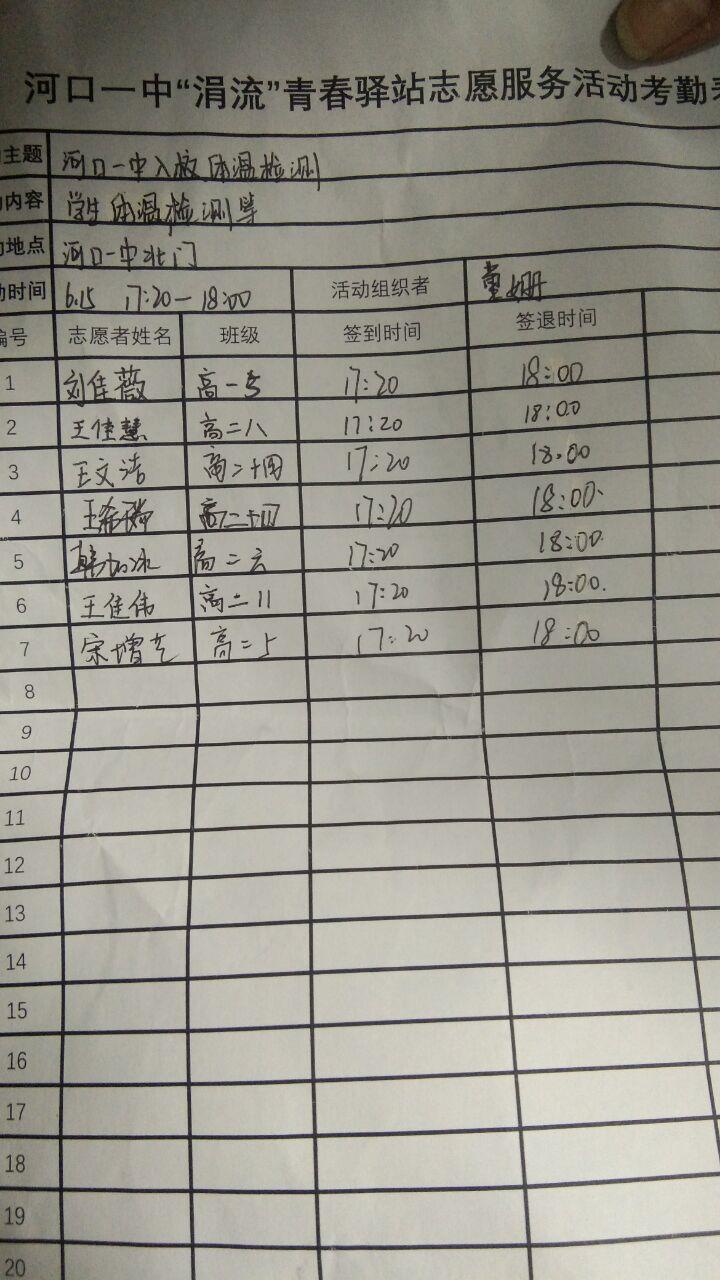 河口一中“涓流”青春驿站志愿服务活动考勤表
主题 河口一中入校体温检测
内容 学生体温检测等
地点 河口一中北门
动时间 6.15 17:20—18:00 活动组织者 董姗
编号 志愿者姓名 班级 签到时间 签退时间
1 刘佳薇 高一5 17:20 18:00
2 王佳慧 高二八 17:20 18:00
3 王文洁 高二十四 17:20 18:00
4 王希瑞 高二十四 17:20 18:00
5 韩加冰 高二六 17:20 18:00
6 王佳伟 高二11 17:20 18:00
7 宋增芝 高二5 17:20 18:00
8
9
10
11
12
13
14
15
16
17
18
19
20